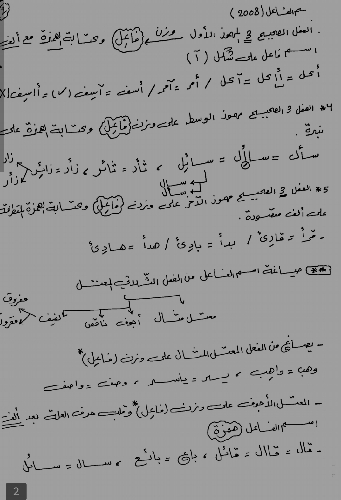 سم الفاعل (2008)
الفعل الصحيح 3 المهموز الأول وزن (فاعل) وكتابة الهمزة مع ألف
اسم فاعل على شكل (آ)
أكل = آكل / أمر = آمر / أسف = آسف (✓) = أاسف X
*4 الفعل 3 الصحيح مهموز الوسط على وزن (فاعل) وكتابة الهمزة على
نبرة.
سأل = سائل ، ثأر = ثائر ، زأر = زائر
زأر
سال
*5 الفعل 3 الصحيح مهموز الآخر على وزن (فاعل) وكتابة الهمزة المتطرفة
على ألف مقصورة.
- قرأ = قارئ / بدأ = بادئ / هدأ = هادئ
** صياغة اسم الفاعل من الفعل الثلاثي المعتل
معتل مثال أجوف ناقص لفيف
مفروق
مقرون
- يصاغ من الفعل المعتل المثال على وزن (فاعل)*
وهب = واهب ، يسر = ياسر ، وصف = واصف
- المعتل الأجوف على وزن (فاعل)* وقلب حرف العلة بعد ألف
اسم الفاعل (همزة)
- قال = قاال = قائل ، باع = بائع ، سال = سائل
2